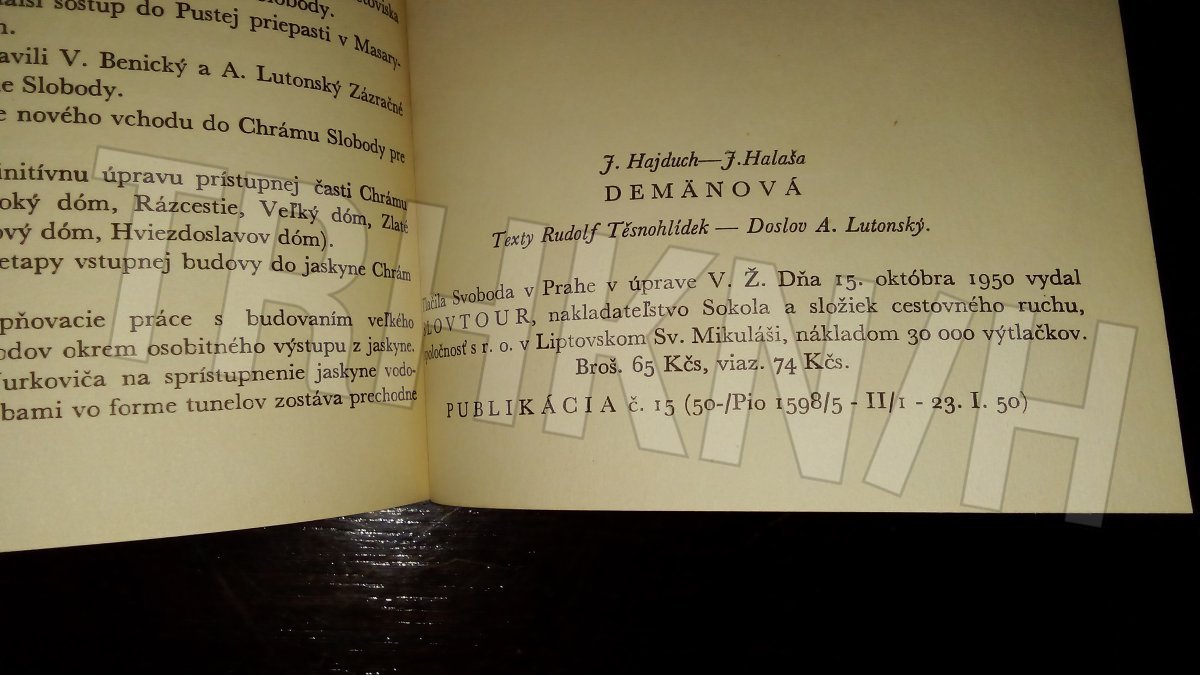 sostup do Pustej priepasti v Masary-
avili V. Benický a A. Lutonský Zázračné
e Slobody.
e nového vchodu do Chrámu Slobody pre
initívnu úpravu prístupnej časti Chrámu
oký dóm, Rázcestie, Veľký dóm, Zlaté
ový dóm, Hviezdoslavov dóm).
etapy vstupnej budovy do jaskyne Chrám
pňovacie práce s budovaním veľkého
odov okrem osobitného výstupu z jaskyne.
Jurkoviča na sprístupnenie jaskyne vodo-
bami vo forme tunelov zostáva prechodne
J. Hajduch—J.Halaša
DEMÄNOVÁ
Texty Rudolf Těsnohlídek — Doslov A. Lutonský.
Tlačila Svoboda v Prahe v úprave V. Ž. Dňa 15. októbra 1950 vydal
SLOVTOUR, nakladateľstvo Sokola a složiek cestovného ruchu,
spoločnosť s r. o. v Liptovskom Sv. Mikuláši, nákladom 30 000 výtlačkov.
Broš. 65 Kčs, viaz. 74 Kčs.
PUBLIKÁCIA č. 15 (50-/Pio 1598/5 - II/1 - 23. I. 50)
TRHKNIH